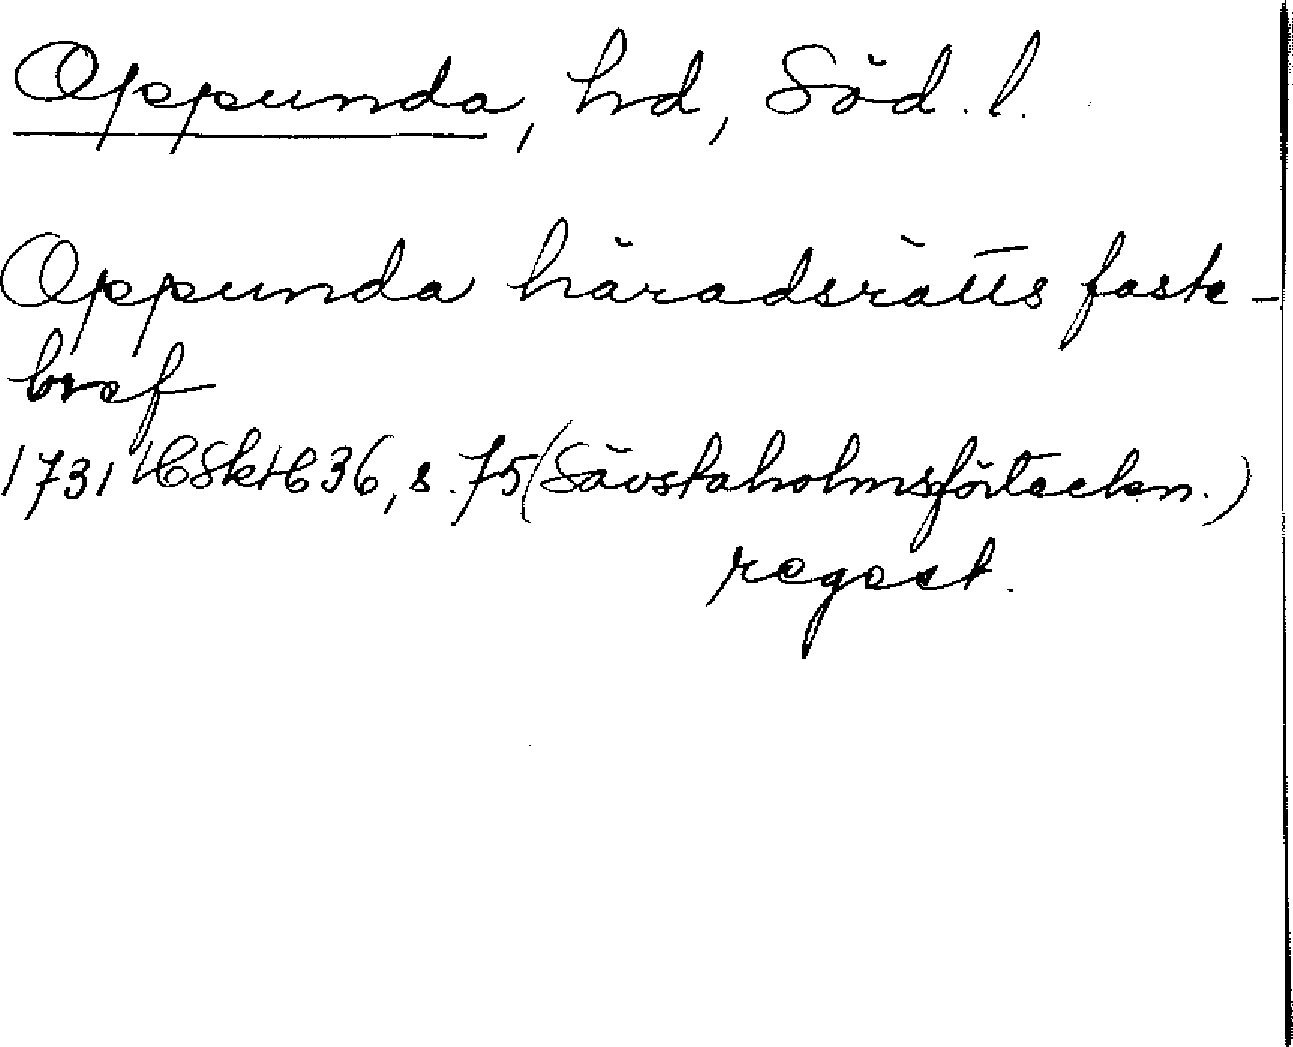 Oppunda, hd, Söd. l.
Oppunda häradsrätts faste-
bref
1731 HSkH 36, s. 75 (Sävstaholmsförteckn.)
regest.